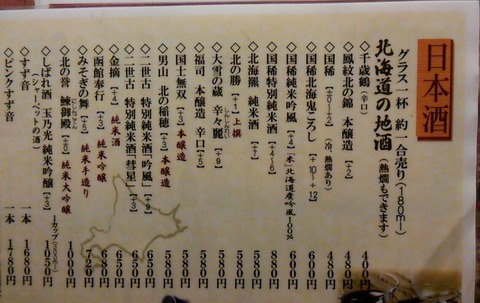 日本酒
グラス一杯 約一合売り(180ml)
北海道の地酒(熱燗もできます)
◇千歳鶴(辛口) 400円
◇鳳紋北の錦 本醸造【+2】 480円
◇国稀【+1~+2】(冷、熱燗あり) 480円
◇国稀北海鬼ころし【+10~+12】 600円
◇国稀純米吟風【+4】"米"北海道産吟風100% 600円
◇国稀特別純米酒【+4~6】 880円
◇北海羅 純米酒【+7】 580円
◇北の勝【+1】上撰 580円
◇大雪の蔵 辛々麗【+9】 580円
◇福司 本醸造 辛口【+5】 580円
◇国士無双【+3】本醸造 580円
◇男山 北の稲穂【+3】本醸造 580円
◇二世古 特別純米酒「吟風」【+9】 650円
◇二世古 特別純米酒「彗星」【+5】 650円
◇金摘【+4】純米酒 650円
◇函館奉行【+4】純米吟醸
◇みそぎの舞【+5】純米手造り 720円
◇北の誉 鰊御殿【±0】純米大吟醸
◇しばれ酒 玉乃光 純米吟醸【+5】 1カップ 1050円
(シャーベットの酒)
◇すず音 一本 1680円
◇ピンクすず音 一本 1780円